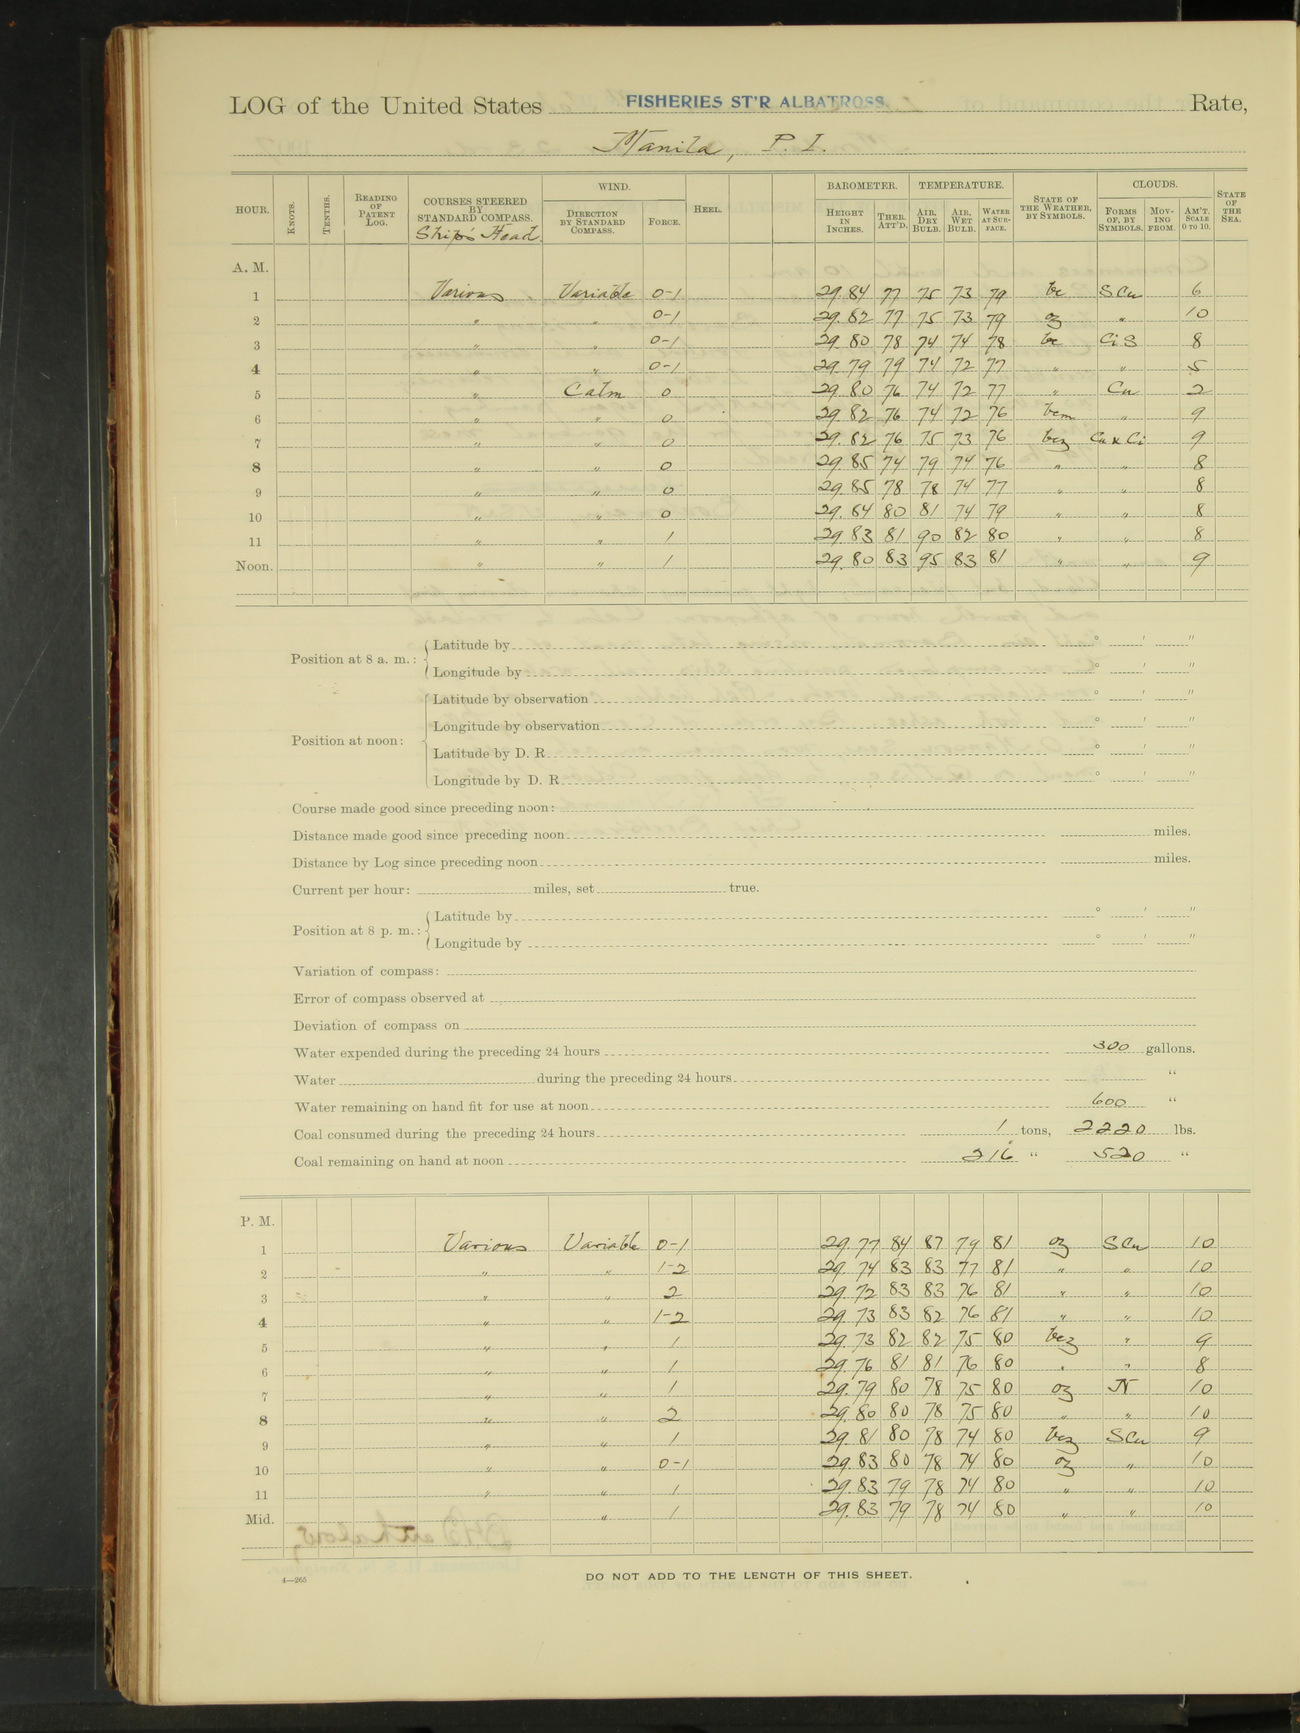 LOG of the United States FISHERIES ST'R ALBATROSS. Rate,
Manila, P. I.
HOUR. KNOTS. TENTHS. READING OF PATENT LOG. COURSES STEERED BY STANDARD COMPASS. Ship's Head. WIND. DIRECTION BY STANDARD COMPASS. FORCE. HEEL. BAROMETER. HEIGHT IN INCHES. THER. ATT'D. TEMPERATURE. AIR, DRY BULB. AIR, WET BULB. WATER AT SURFACE. STATE OF THE WEATHER, BY SYMBOLS. CLOUDS. FORMS OF, BY SYMBOLS. MOVING FROM. AM'T. SCALE 0 TO 10. STATE OF THE SEA.
A. M.
1 Various Variable 0-1 29.84 77 75 73 79 bc S Cu 6
2 " " 0-1 29.82 77 75 73 79 oz " 10
3 " " 0-1 29.80 78 74 74 78 bc Ci S 8
4 " " 0-1 29.79 79 74 72 77 " " 5
5 " Calm 0 29.80 76 74 72 77 " Cu 2
6 " " 0 29.82 76 74 72 76 bcm " 9
7 " " 0 29.82 76 75 73 76 bcz Cu & Ci 9
8 " " 0 29.85 74 79 74 76 " " 8
9 " " 0 29.85 78 78 74 77 " " 8
10 " " 0 29.84 80 81 74 79 " " 8
11 " " 1 29.83 81 90 82 80 " " 8
Noon. " " 1 29.80 83 95 83 81 " " 9
Position at 8 a. m.:
Latitude by ° ' "
Longitude by ° ' "
Position at noon:
Latitude by observation ° ' "
Longitude by observation ° ' "
Latitude by D. R. ° ' "
Longitude by D. R. ° ' "
Course made good since preceding noon:
Distance made good since preceding noon miles.
Distance by Log since preceding noon miles.
Current per hour: miles, set true.
Position at 8 p. m.:
Latitude by ° ' "
Longitude by ° ' "
Variation of compass:
Error of compass observed at
Deviation of compass on
Water expended during the preceding 24 hours 300 gallons.
Water during the preceding 24 hours "
Water remaining on hand fit for use at noon 600 "
Coal consumed during the preceding 24 hours 1 tons, 2220 lbs.
Coal remaining on hand at noon 216 " 520 "
P. M.
1 Various Variable 0-1 29.77 84 87 79 81 oz S Cu 10
2 " " 1-2 29.74 83 83 77 81 " " 10
3 " " 2 29.72 83 83 76 81 " " 10
4 " " 1-2 29.73 83 82 76 81 " " 10
5 " " 1 29.73 82 82 75 80 bcz " 9
6 " " 1 29.76 81 81 76 80 " " 8
7 " " 1 29.79 80 78 75 80 oz N 10
8 " " 2 29.80 80 78 75 80 " " 10
9 " " 1 29.81 80 78 74 80 bcz S Cu 9
10 " " 0-1 29.83 80 78 74 80 oz " 10
11 " " 1 29.83 79 78 74 80 " " 10
Mid. " 1 29.83 79 78 74 80 " " 10
4—265
DO NOT ADD TO THE LENGTH OF THIS SHEET.